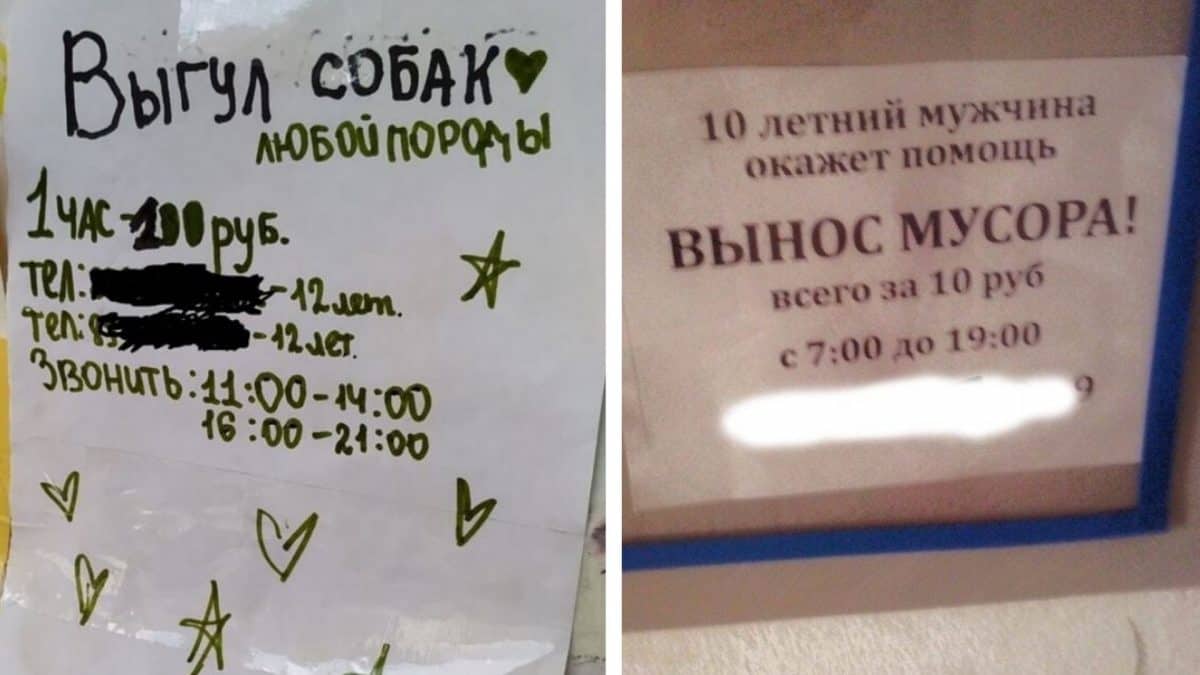 Выгул СОБАК
ЛЮБОЙ ПОРОДЫ
1 ЧАС - 100 руб.
Тел: -12 лет.
Тел: -12 лет.
Звонить: 11:00-14:00
16:00-21:00
10 летний мужчина
окажет помощь
ВЫНОС МУСОРА!
всего за 10 руб
с 7:00 до 19:00
9